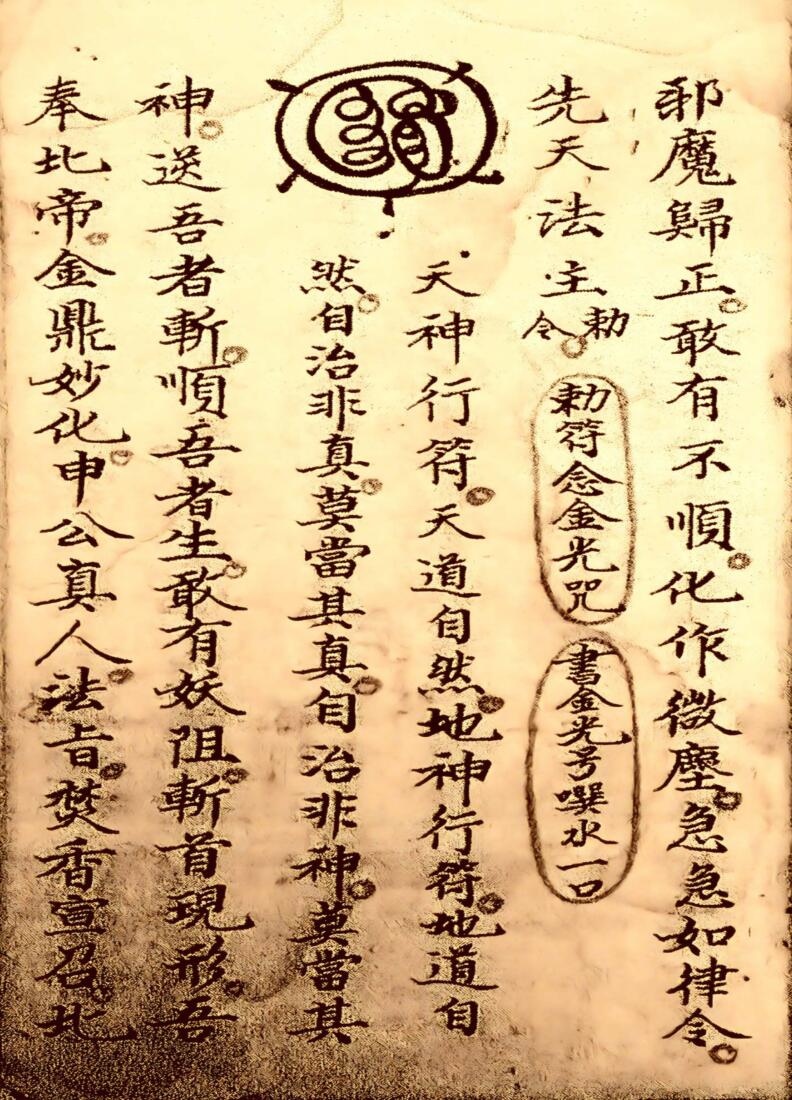 邪魔歸正敢有不順化作微塵急急如律令
先天法主勅令
勅符念金光咒
書金光号噀水一口
天神行符天道自然地神行符地道自
然自治非真莫當其真自治非神莫當其
神送吾者斬順吾者生敢有妖阻斬首現形吾
奉北帝金鼎妙化申公真人法旨焚香宣召北